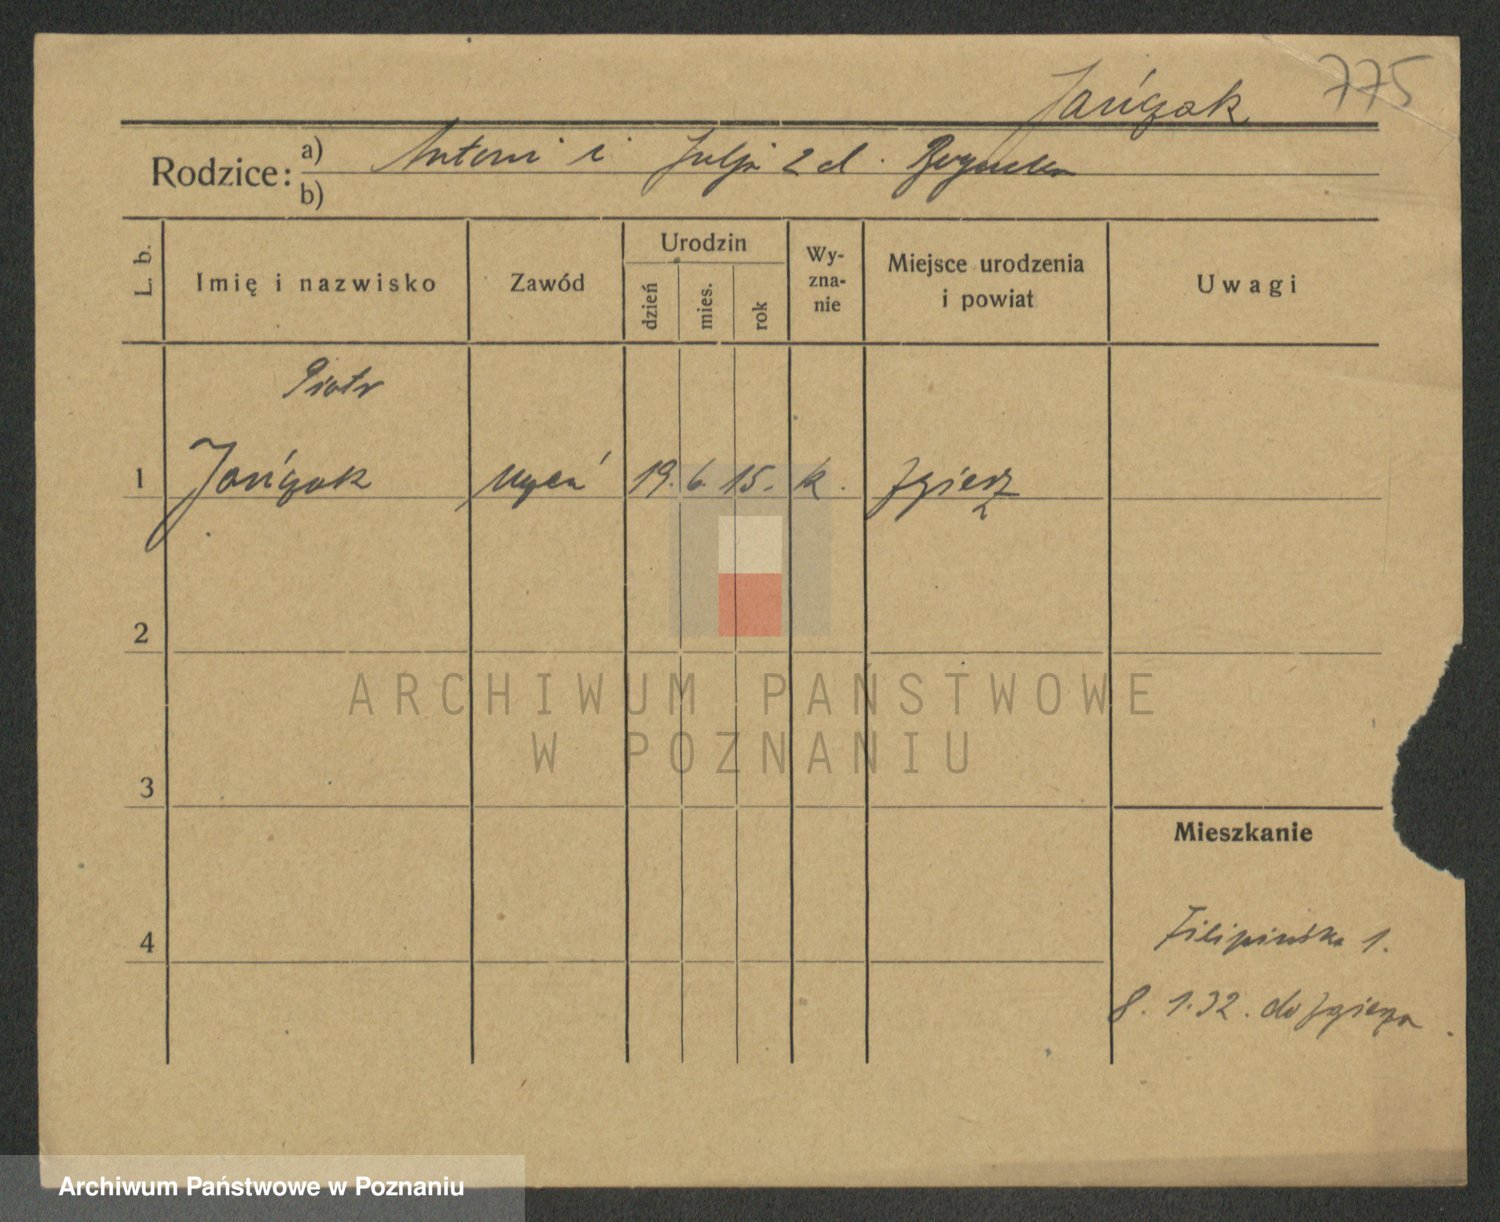 775
Jańczak
Rodzice: a) Antoni i Julja 2 d.
b)
L. b.
Imię i nazwisko
Zawód
Urodzin
dzień
mies.
rok
Wy-
zna-
nie
Miejsce urodzenia
i powiat
Uwagi
Piotr
1 Jańczak uczeń 19. 6. 15. k. Zgierz
2
3
4
Mieszkanie
Filipińska 1.
8. 1.32. do Zgierza
ARCHIWUM PAŃSTWOWE
W POZNANIU
Archiwum Państwowe w Poznaniu